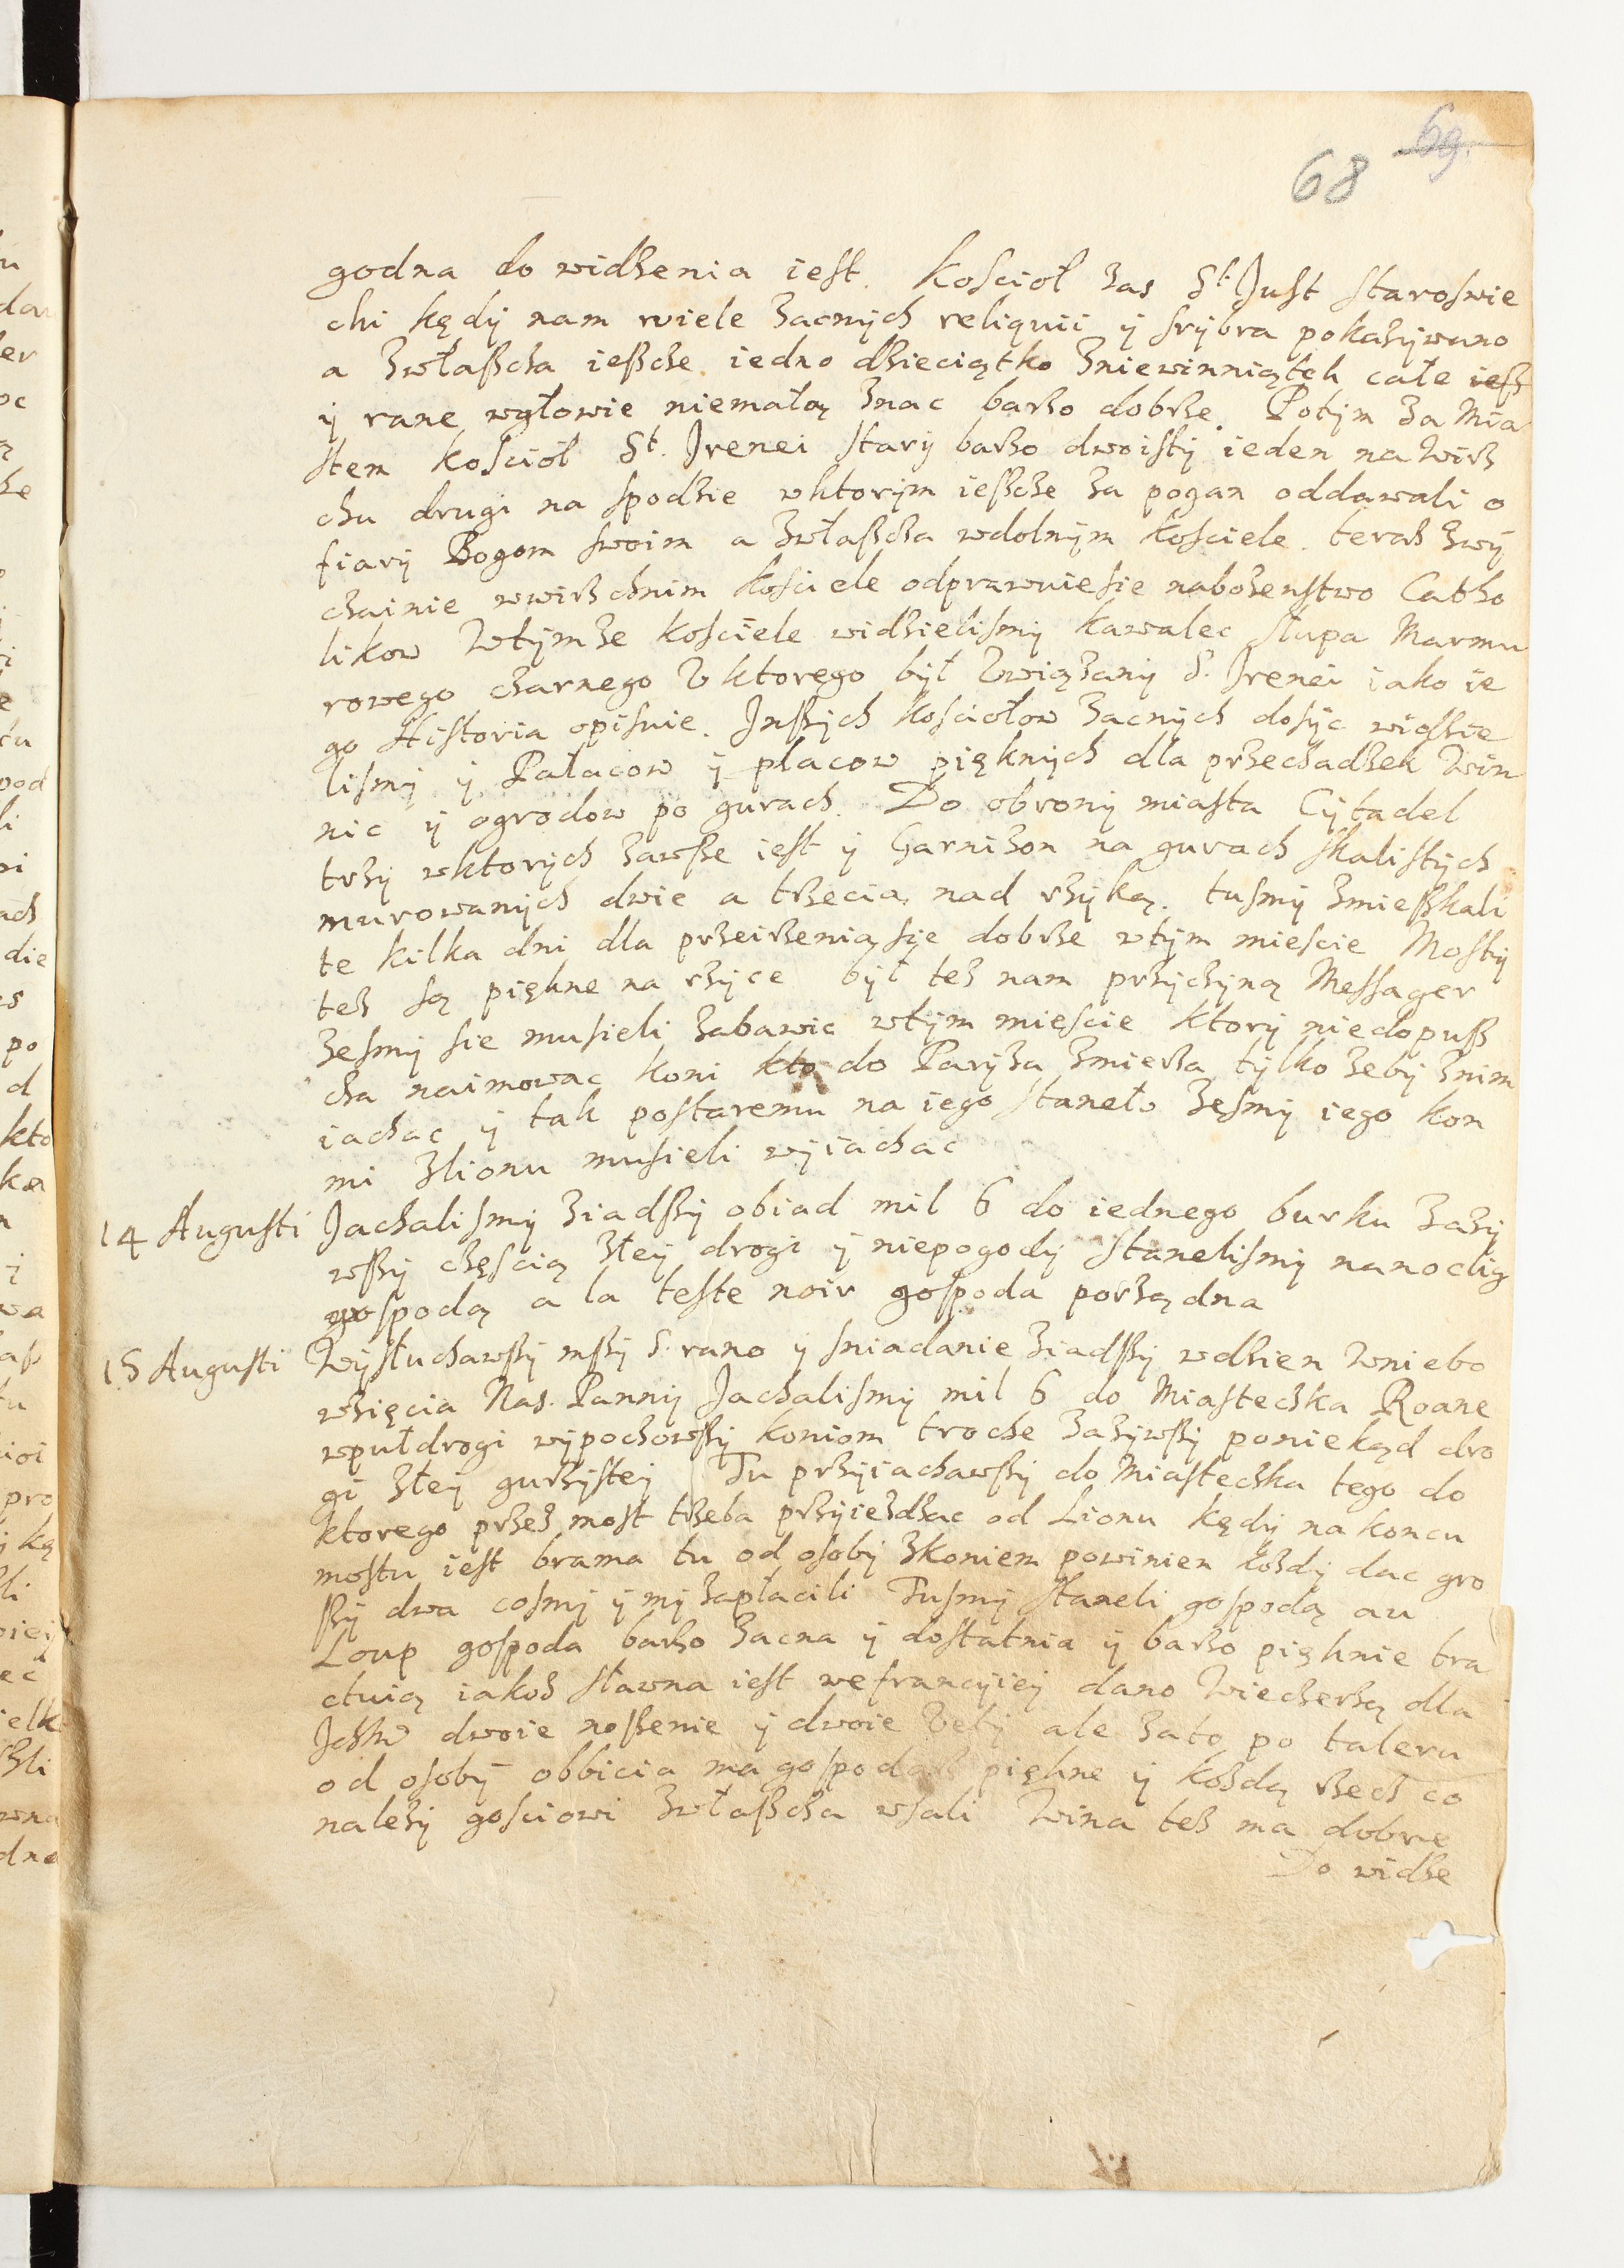 69.
68
godna do widzenia iest. Koscioł zas St. Just staroswie
chi kędy nam wiele zacnych reliquii y srybra pokazywano
a zwłaszcza ieszcze iedno dzieciątko zniewinniątek całe iest
y rane wgłowie niemałą znac barzo dobrze. Potym za Mia
stem kosciół St. Irenei stary barzo dwoisty ieden na wirz
chu drugi na spodzie wktorym ieszcze za pogan oddawali o
fiary Bogom swoim a zwłaszcza wdolnym kosciele. teraz zwy
czainie wwirzchnim kosciele odprawuiesie nabozenstwo Catho
likow Wtymze kosciele widzielismy kawalec słupa Marmu
rowego czarnego V ktorego był związany S. Irenei iako ie
go Historia opisuie. Inszych kosciołow zacnych dosyc widzie
lismy y Pałacow y placow pięknych dla przechadzek Win
nic y ogrodow po gurach. Do obrony miasta Cytadel
trzy wktorych zawsze iest y Garnizon na gurach skalistych
murowanych dwie a trzecia nad rzyką. tusmy zmieszkali
te kilka dni dla przeirzenia sie dobrze wtym miescie Mosty
tez są piękne na rzyce był tez nam przyczyną Messager
zesmy sie musieli zabawic wtym miescie ktory niedopusz
cza naimowac koni kto do Paryza zmierza tylko zeby znim
iachac y tak postaremu na iego staneło zesmy iego kon
mi zlionu musieli wyiachac
14 Augusti Jachalismy ziadszy obiad mil 6 do iednego burku zazy
wszy częscią złey drogi y niepogody stanelismy nanoclig
gospodą a la teste noir gospoda porządna
15 Augusti Wysłuchawszy mszy S. rano y sniadanie ziadszy wdzien Wniebo
wzięcia Nas. Panny Jachalismy mil 6 do Miasteczka Roane
wpułdrogi wypochowszy koniom troche zazywszy poniekąd dro
gi złey gurzystey Tu przyiachawszy do Miasteczka tego do
ktorego przez most trzeba przyiezdzac od Lionu kędy na koncu
mostu iest brama tu od osoby zkoniem powinien kozdy dac gro
szy dwa cosmy y my zapłacili Tusmy staneli gospodą au
Loup gospoda barzo zacna y dostatnia y barzo pięknie tra
ctuią iakoz sławna iest wefrancyiey dano Wieczerzą dla
dwoie noszenie y dwoie ale zato po taleru
od osoby obbicia ma gospodarz piękne y kozdą rzecz co
nalezy gosciowi zwłaszcza wsali Wina tez ma dobre
Do widze